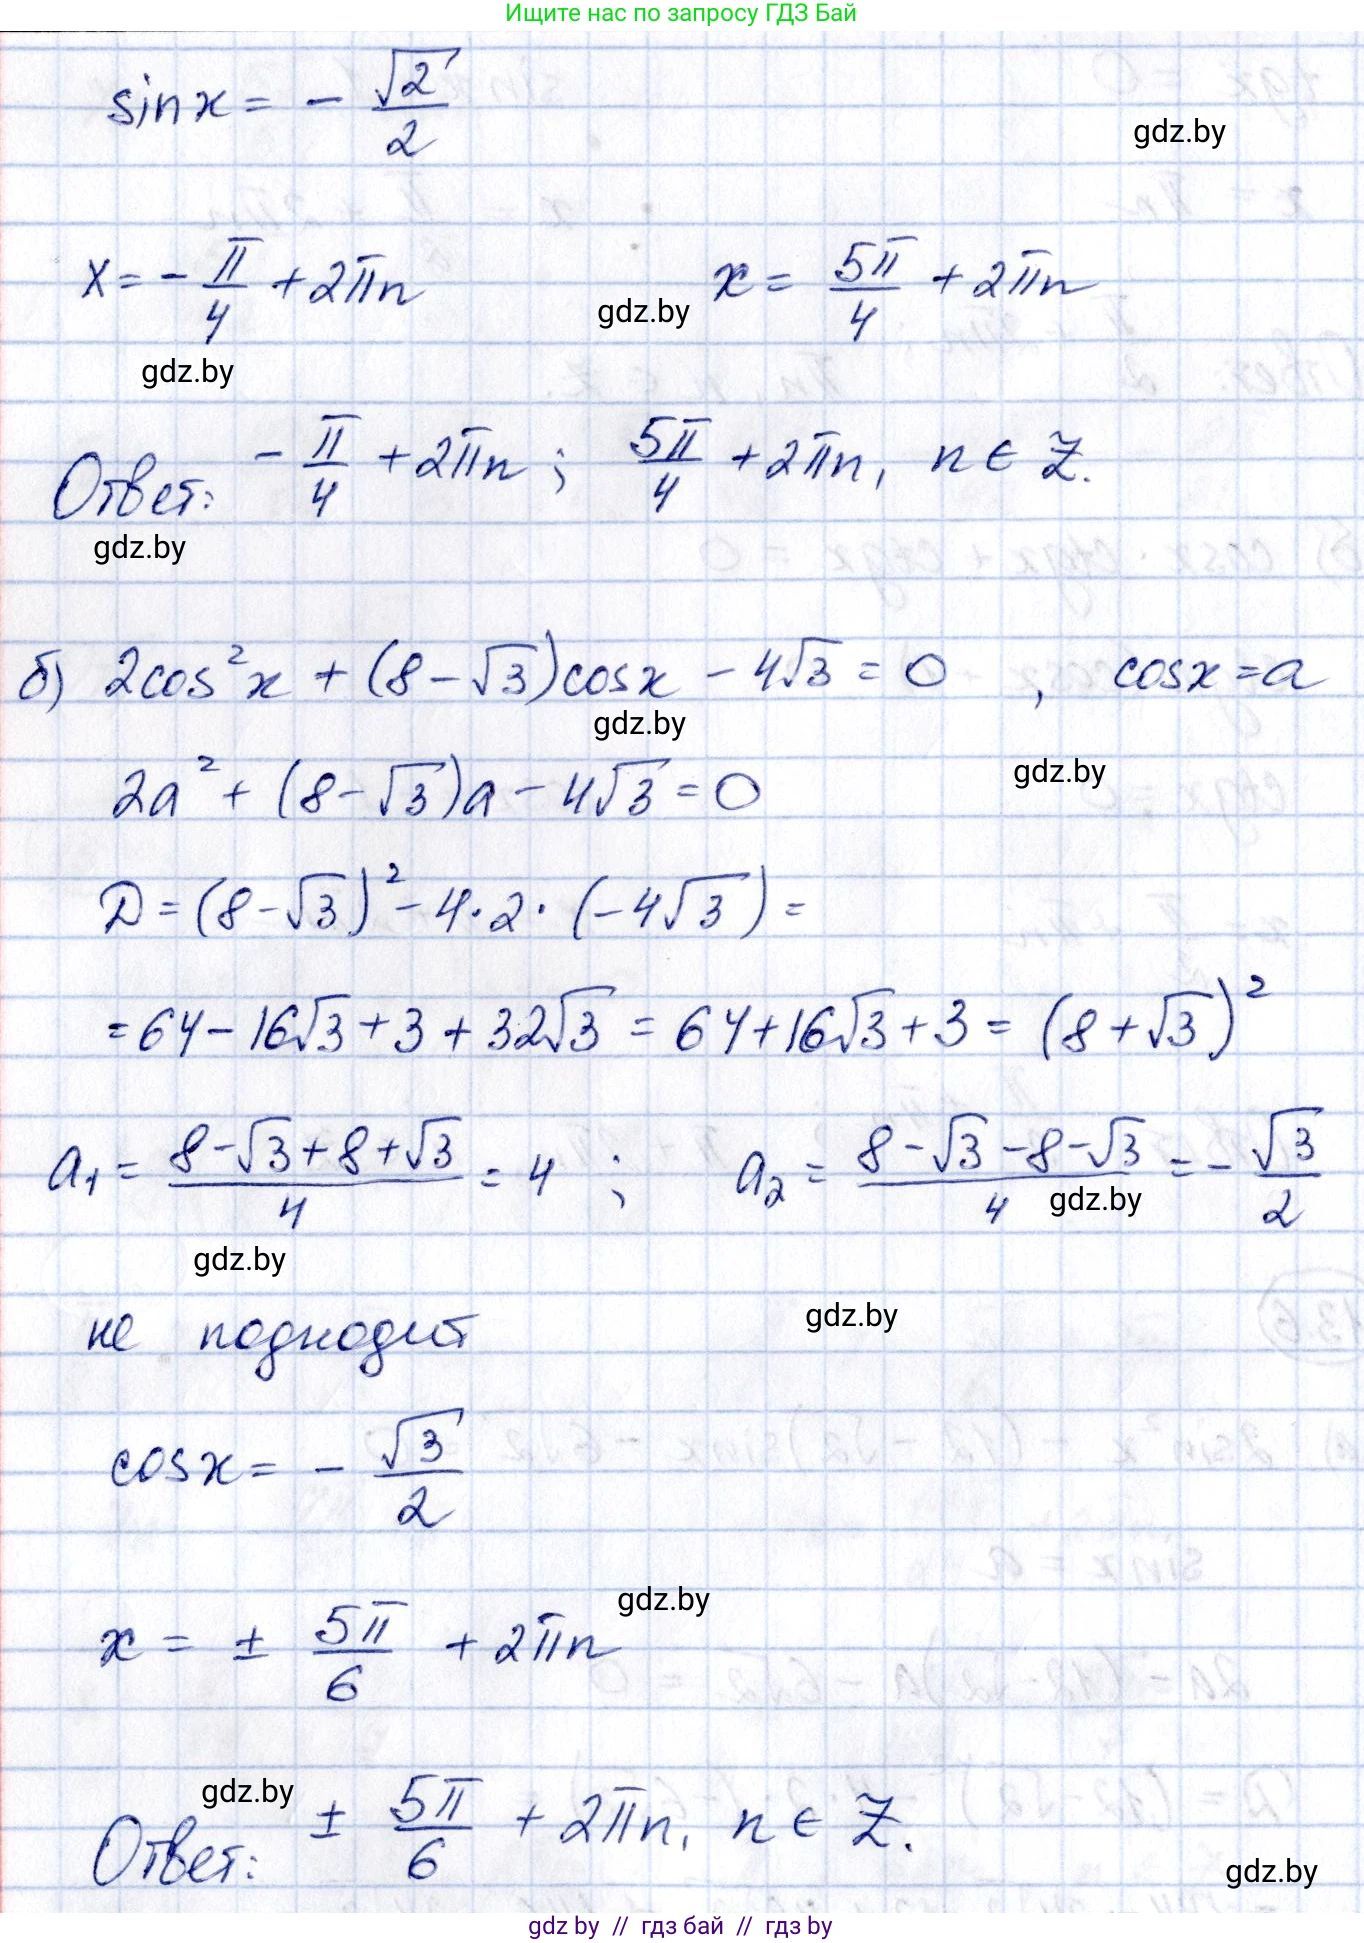 Ищите нас по запросу ГДЗ Бай
sinx = - √2/2
gdz.by
x = - π/4 + 2πn x = 5π/4 + 2πn
gdz.by
gdz.by
Ответ: - π/4 + 2πn ; 5π/4 + 2πn, n ∈ Z.
gdz.by
б) 2cos²x + (8 - √3)cosx - 4√3 = 0 , cosx = a
gdz.by
2a² + (8 - √3)a - 4√3 = 0
gdz.by
D = (8 - √3)² - 4·2·(-4√3) =
= 64 - 16√3 + 3 + 32√3 = 64 + 16√3 + 3 = (8 + √3)²
a₁ = (8 - √3 + 8 + √3)/4 = 4 ; a₂ = (8 - √3 - 8 - √3)/4 = - √3/2
gdz.by
gdz.by
не подходит
gdz.by
cosx = - √3/2
gdz.by
x = ± 5π/6 + 2πn
gdz.by
Ответ: ± 5π/6 + 2πn, n ∈ Z.
gdz.by
gdz by // гдз бай // gdz by